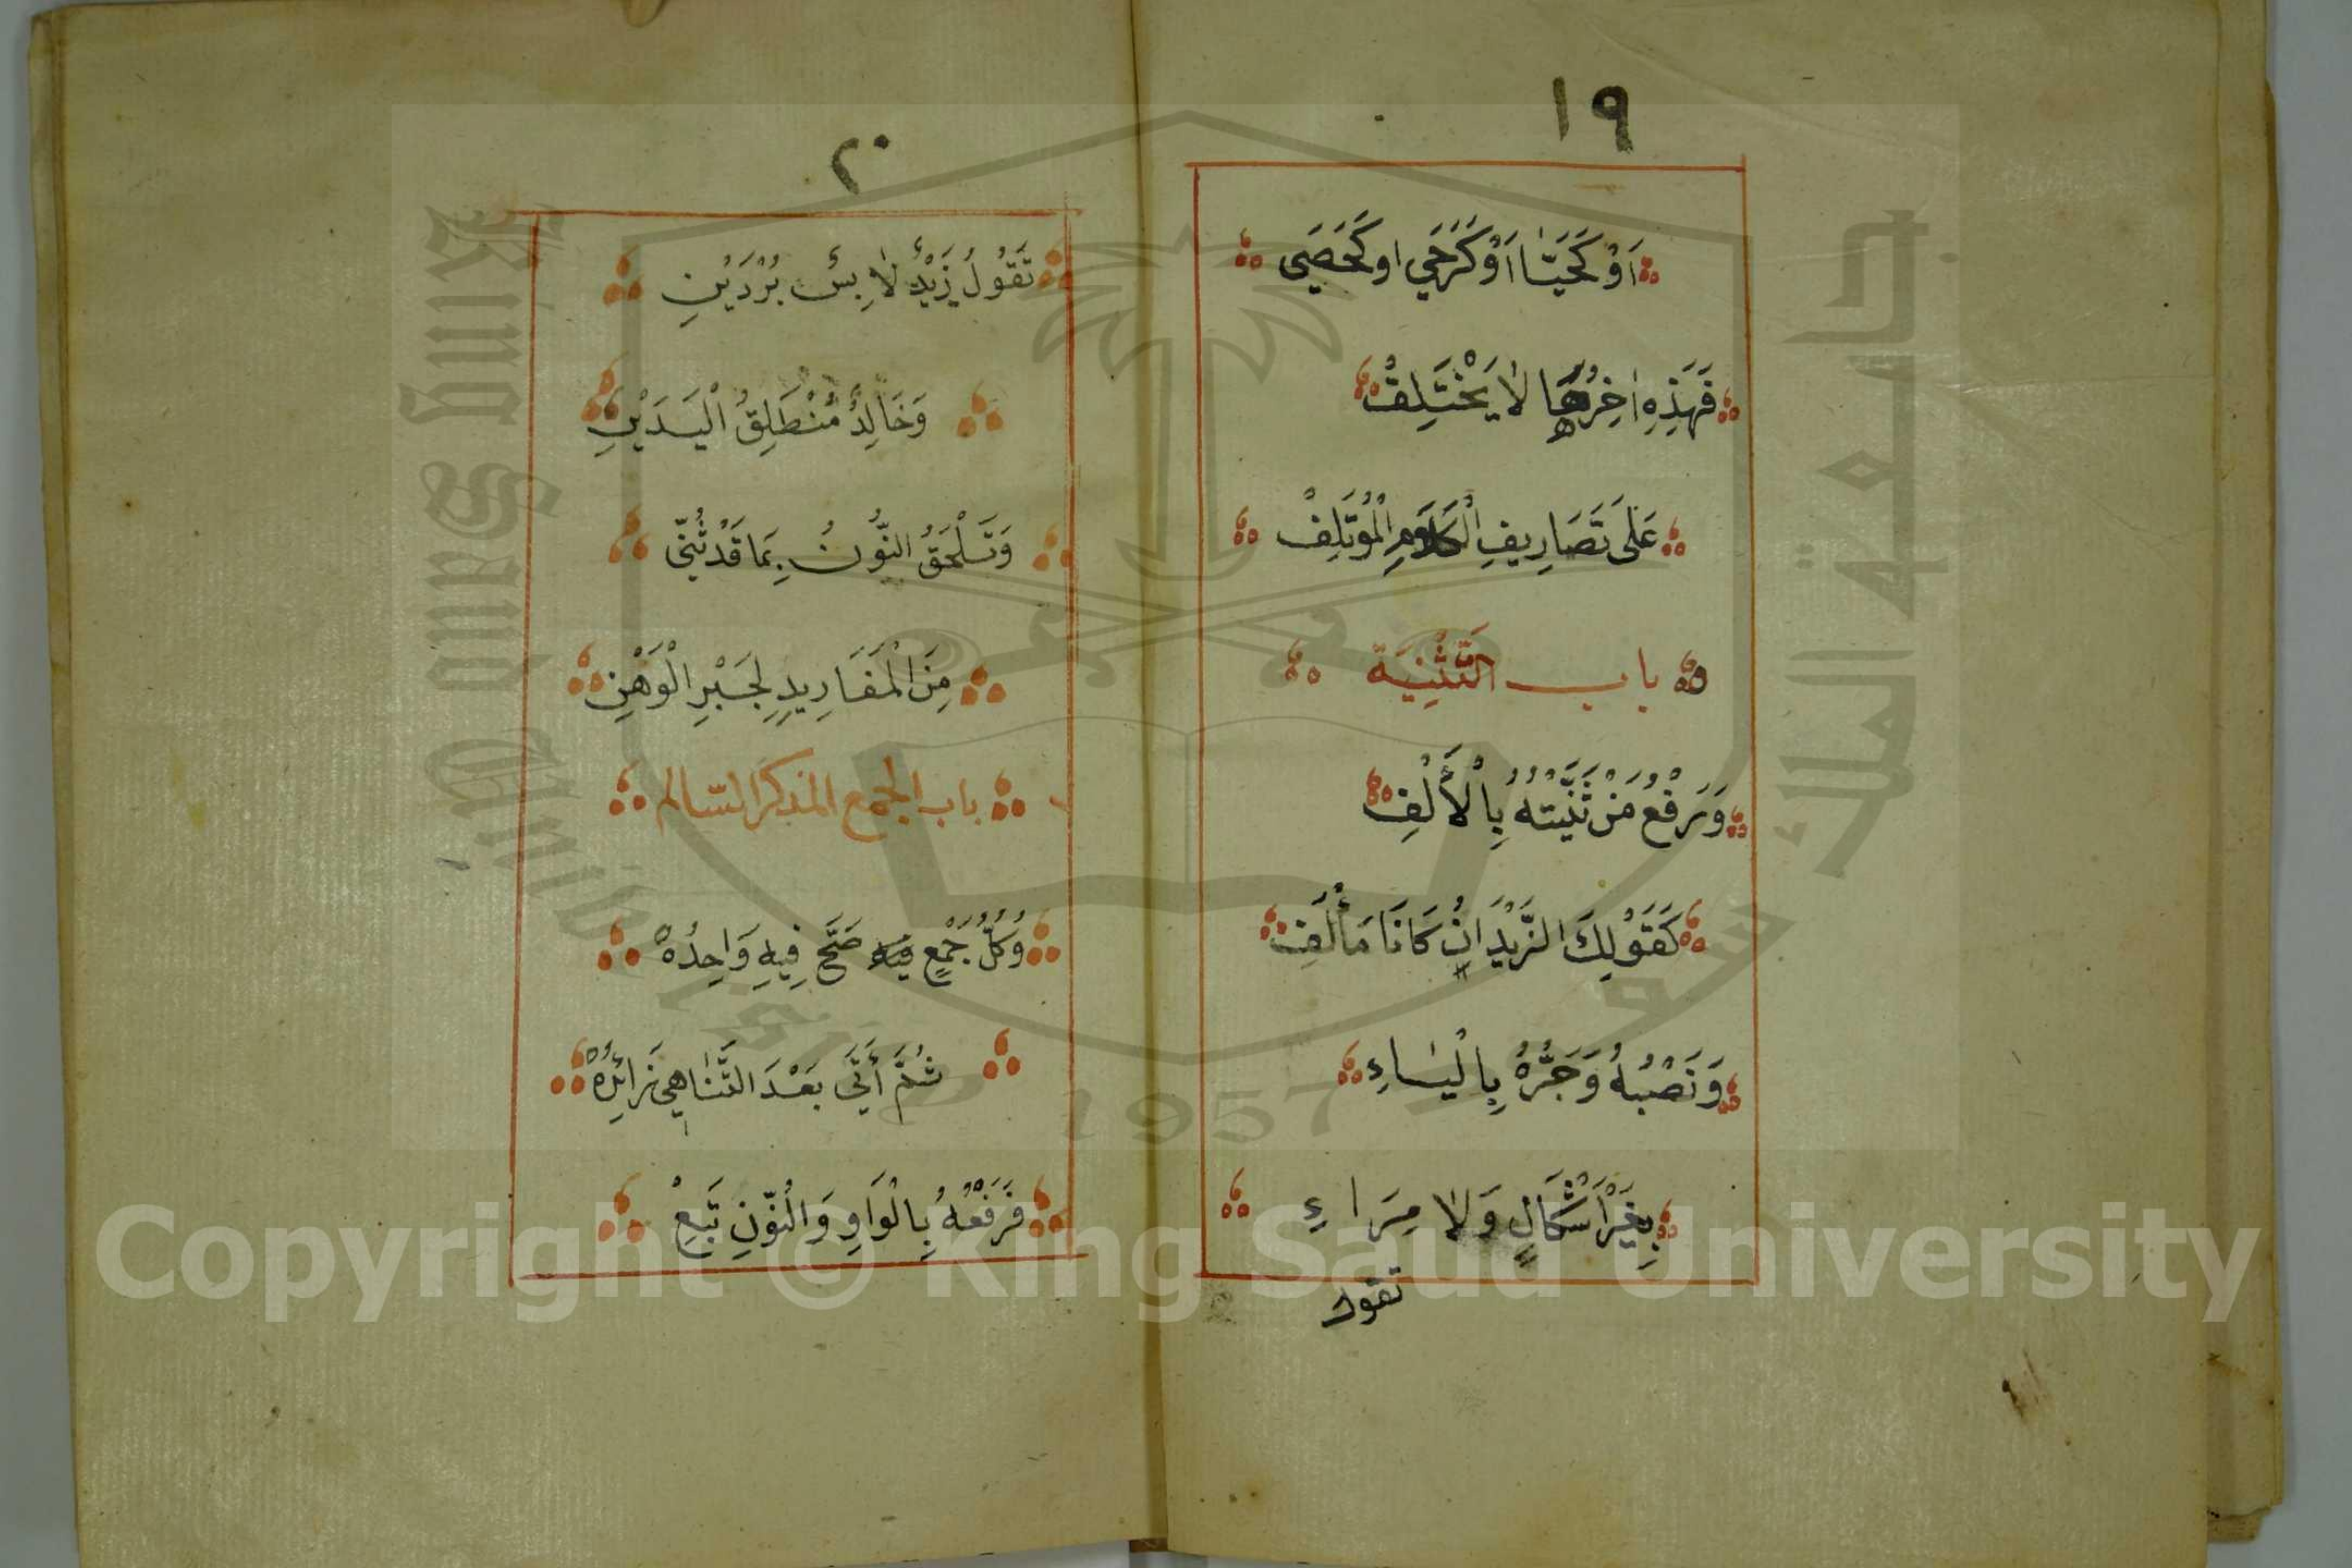 ١٩
اَوْ كَحَيَّا اَوْ كَرَحَي اوكَحَصَى
فَهَذِهِ اٰخِرُهَا لاٰ يَخْتَلِفُ
عَلٰى تَصَارِيفِ الْكَلاَمِ الْمُؤتَلِفْ
باب التَّثْنِيَة
وَرَفْعُ مَنْ ثَنَّيْتَهُ بِالْأَلْفِ
كَقَوْلِكَ الزَّيْدَانِ كَانَا مَأْلَفِ
وَنَصْبُهُ وَجَرُّهُ بِالْيَاءِ
بِغَيْرِ أَشْكَالٍ وَلاٰ مِرَاءِ
تقول
٢٠
تَقُولُ زَيْدٌ لاٰبِسٌ بُرْدَيْنِ
وَخَالِدٌ مُنْطَلِقُ الْيَدَيْنِ
وَتَلْحَقُ النُّونُ بِمَا قَدْ ثُنِّي
مِنَ الْمَفَارِيدِ لِجَبْرِ الْوَهْنِ
باب الجمع المذكر السّالم
وَكُلُّ جَمْعٍ فيه صَحَّ فِيهِ وَاحِدُهْ
ثُمَّ أَتَى بَعْدَ التَّنَاهِي زَائِدُهْ
فَرَفْعُهُ بِالْوَاوِ وَالنُّونِ تَبَعْ
جامعة الملك سعود
King Saud University
1957
Copyright © King Saud University